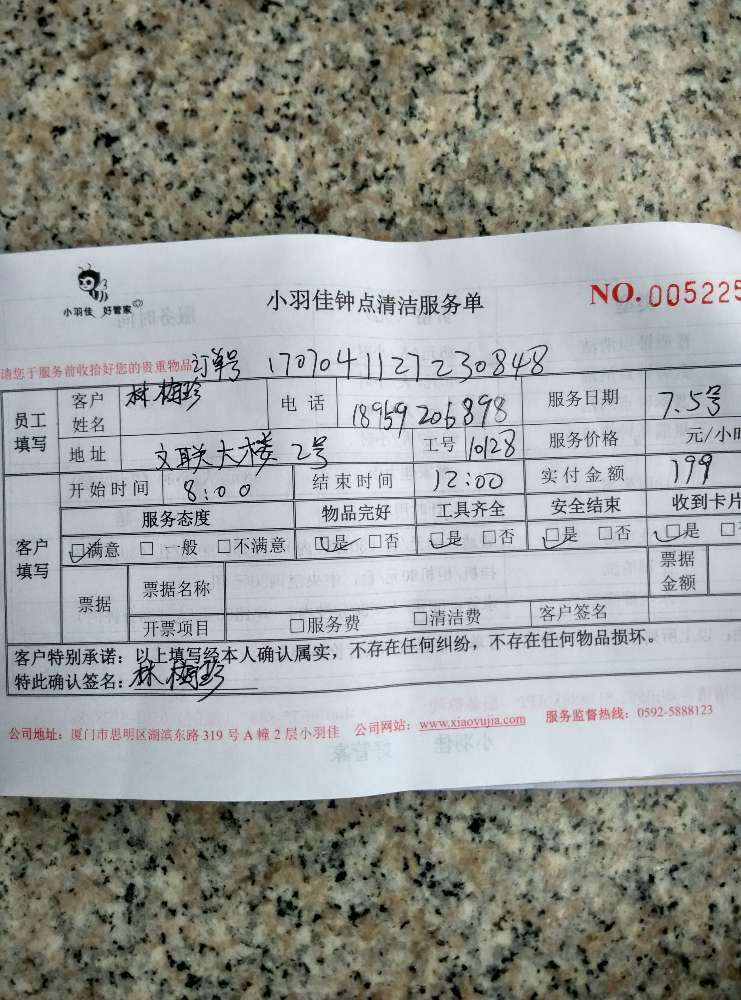 小羽佳 好管家
小羽佳钟点清洁服务单
NO. 005225
请您于服务前收拾好您的贵重物品 订单号 1707041127230848
员工填写 客户姓名 林梅珍 电话 18959206898 服务日期 7.5号
地址 文联大楼 2号 工号 10128 服务价格 元/小时
客户填写 开始时间 8:00 结束时间 12:00 实付金额 199
服务态度 物品完好 工具齐全 安全结束 收到卡片
☑满意 □一般 □不满意 ☑是 □否 ☑是 □否 ☑是 □否 ☑是 □
票据 票据名称 票据金额
开票项目 □服务费 □清洁费 客户签名
客户特别承诺：以上填写经本人确认属实，不存在任何纠纷，不存在任何物品损坏。
特此确认签名：林梅珍
公司地址：厦门市思明区湖滨东路 319 号 A 幢 2 层小羽佳 公司网站：www.xiaoyujia.com 服务监督热线：0592-5888123